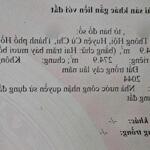 ài sản khác gắn liền với đất
tờ bản đồ số
Thông Hội, Huyện Củ Chi, Thành phố Hồ
4.9 m², (bằng chữ: Hai trăm bảy mươi bố
riêng: 274.9 m²; chung: Không
Đất trồng cây lâu năm
2044
Nhà nước công nhận quyền sử dụng đất
khác: